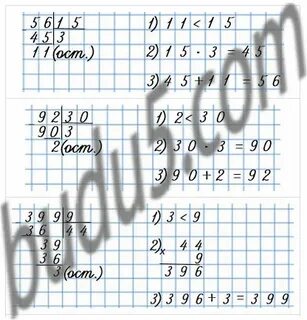 56|15
45 3
11(ост.)
1) 11 < 15
2) 15 · 3 = 45
3) 45 + 11 = 56
92|30
90 3
2(ост.)
1) 2 < 30
2) 30 · 3 = 90
3) 90 + 2 = 92
399|9
36 44
39
36
3(ост.)
1) 3 < 9
2) x 44
9
396
3) 396 + 3 = 399
budu5.com